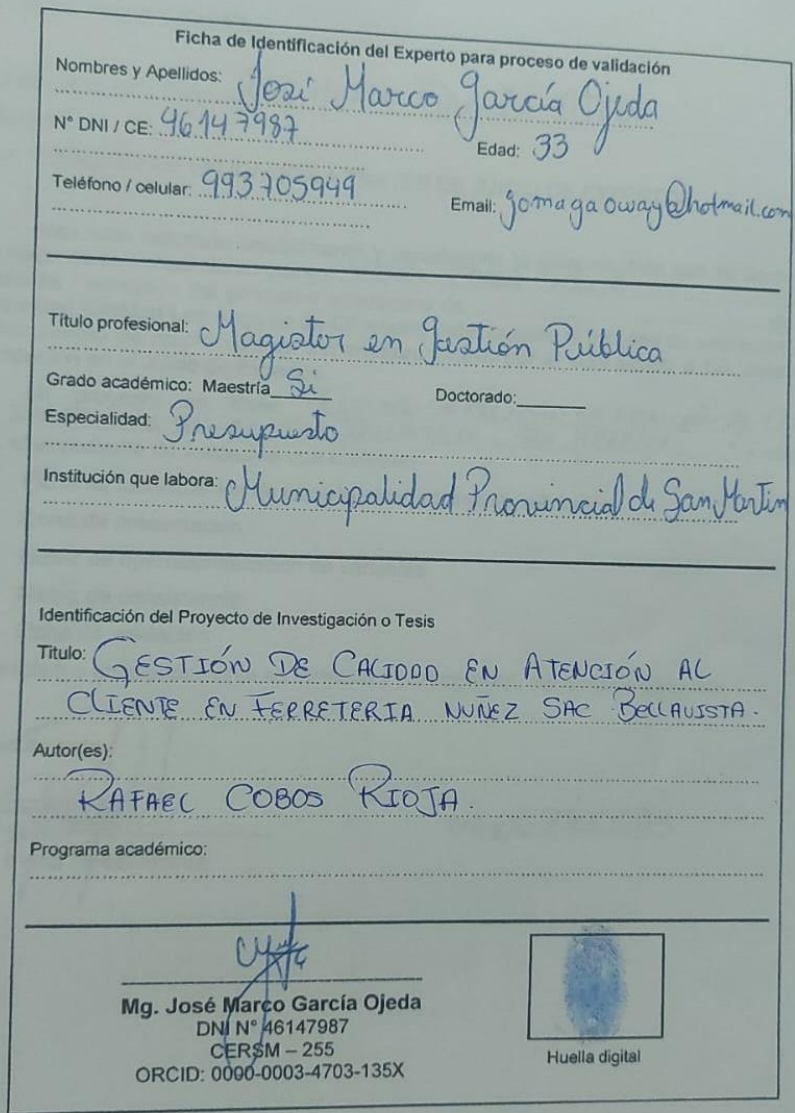 Ficha de Identificación del Experto para proceso de validación
Nombres y Apellidos: José Marco García Ojeda
N° DNI / CE: 46147987 Edad: 33
Teléfono / celular: 993705949 Email: jomagaoway@hotmail.com
Título profesional: Magister en Gestión Pública
Grado académico: Maestría Si Doctorado:
Especialidad: Presupuesto
Institución que labora: Municipalidad Provincial de San Martin
Identificación del Proyecto de Investigación o Tesis
Titulo: GESTIÓN DE CALIDAD EN ATENCIÓN AL
CLIENTE EN FERRETERIA NUÑEZ SAC BELLAVISTA.
Autor(es):
RAFAEL COBOS RIOJA.
Programa académico:
Mg. José Marco García Ojeda
DNI N° 46147987
CERSM – 255
ORCID: 0000-0003-4703-135X
Huella digital